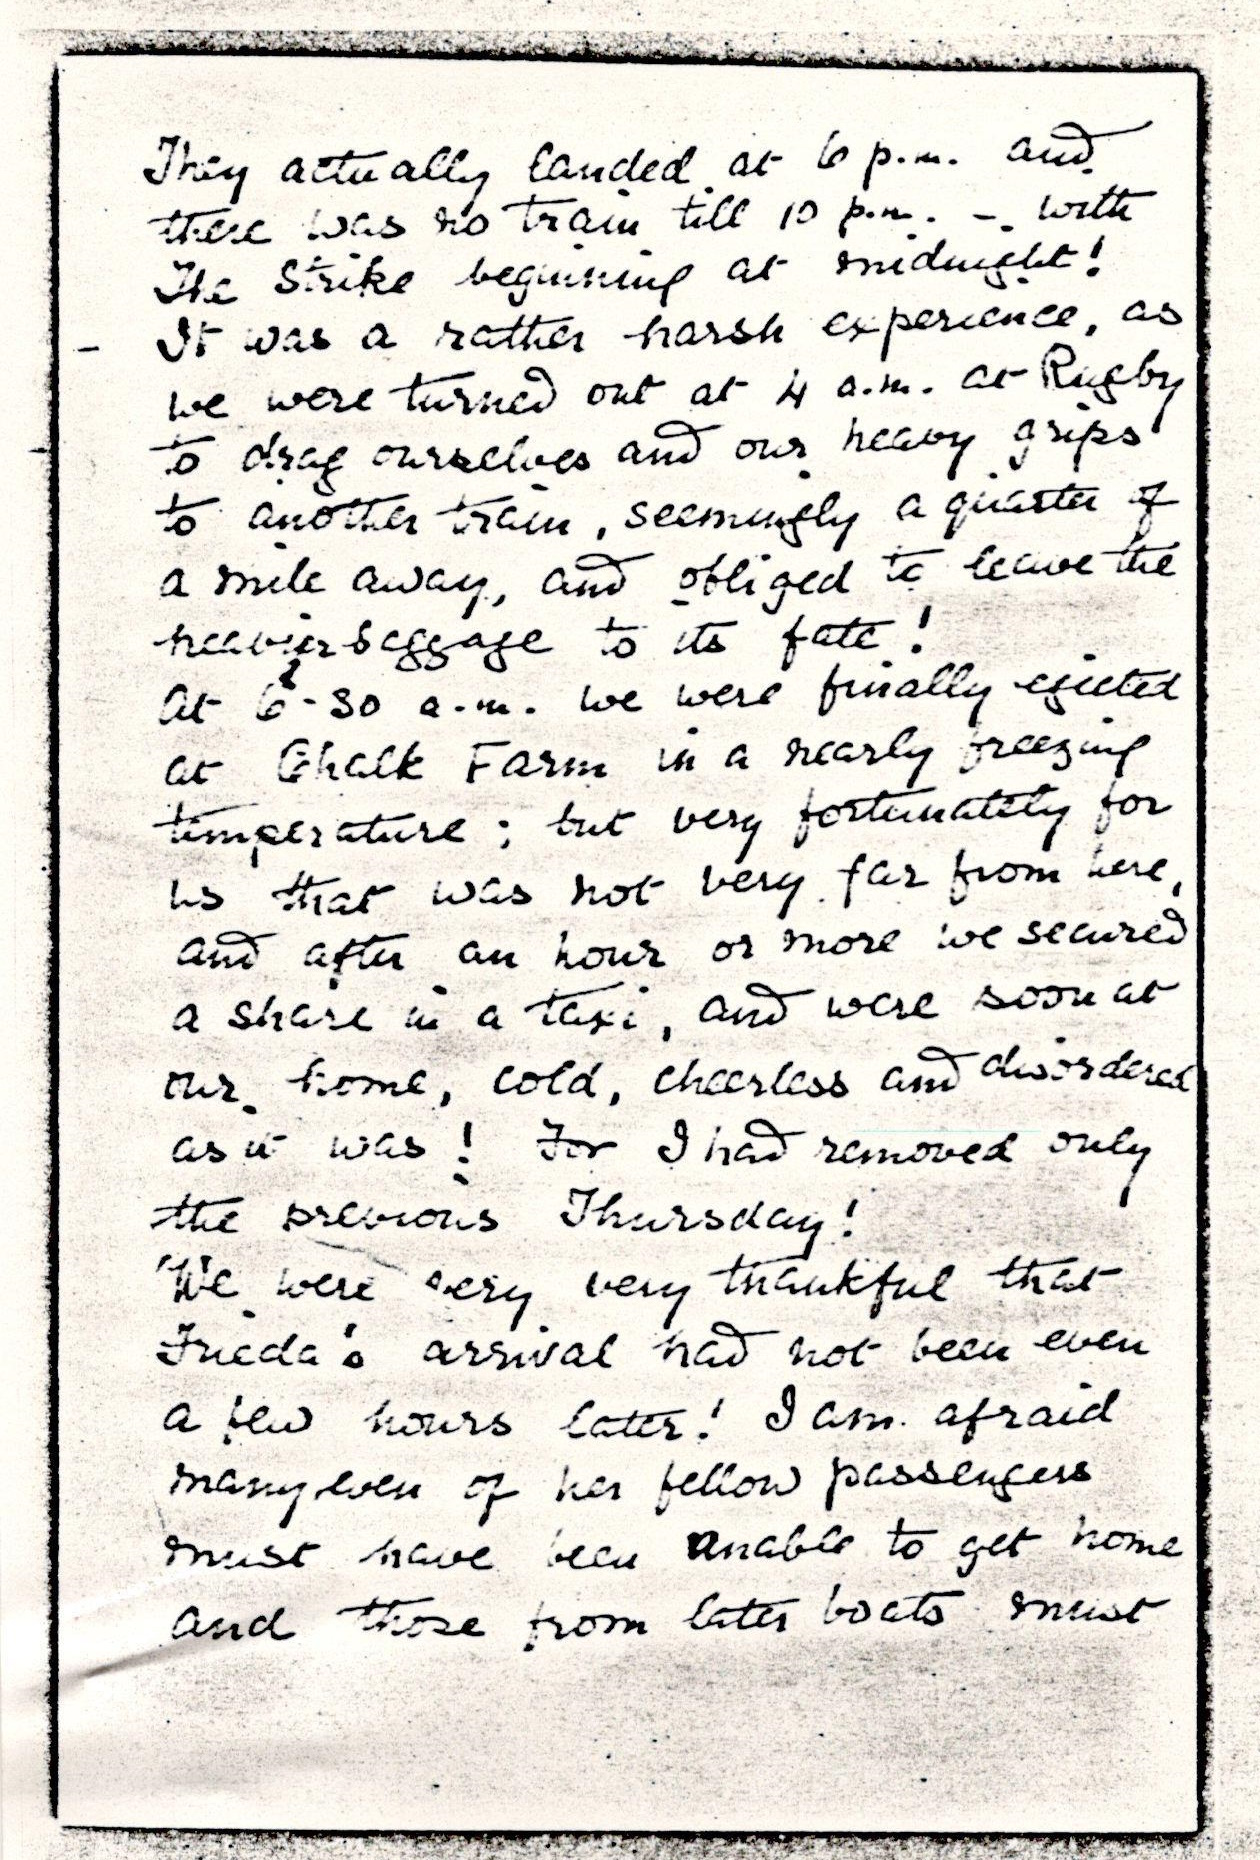 They actually landed at 6 p.m. and
there was no train till 10 p.m. - with
The Strike beginning at midnight!
It was a rather harsh experience, as
we were turned out at 4 a.m. at Rugby
to drag ourselves and our heavy grips
to another train, seemingly a quarter of
a mile away, and obliged to leave the
heavier baggage to its fate!
At 6-30 a.m. we were finally ejected
at Chalk Farm in a nearly freezing
temperature; but very fortunately for
us that was not very far from here,
and after an hour or more we secured
a share in a taxi, and were soon at
our home, cold, cheerless and disordered
as it was! For I had removed only
the previous Thursday!
We were very very thankful that
Frieda's arrival had not been even
a few hours later! I am afraid
many even of her fellow passengers
must have been unable to get home
and those from later boats must